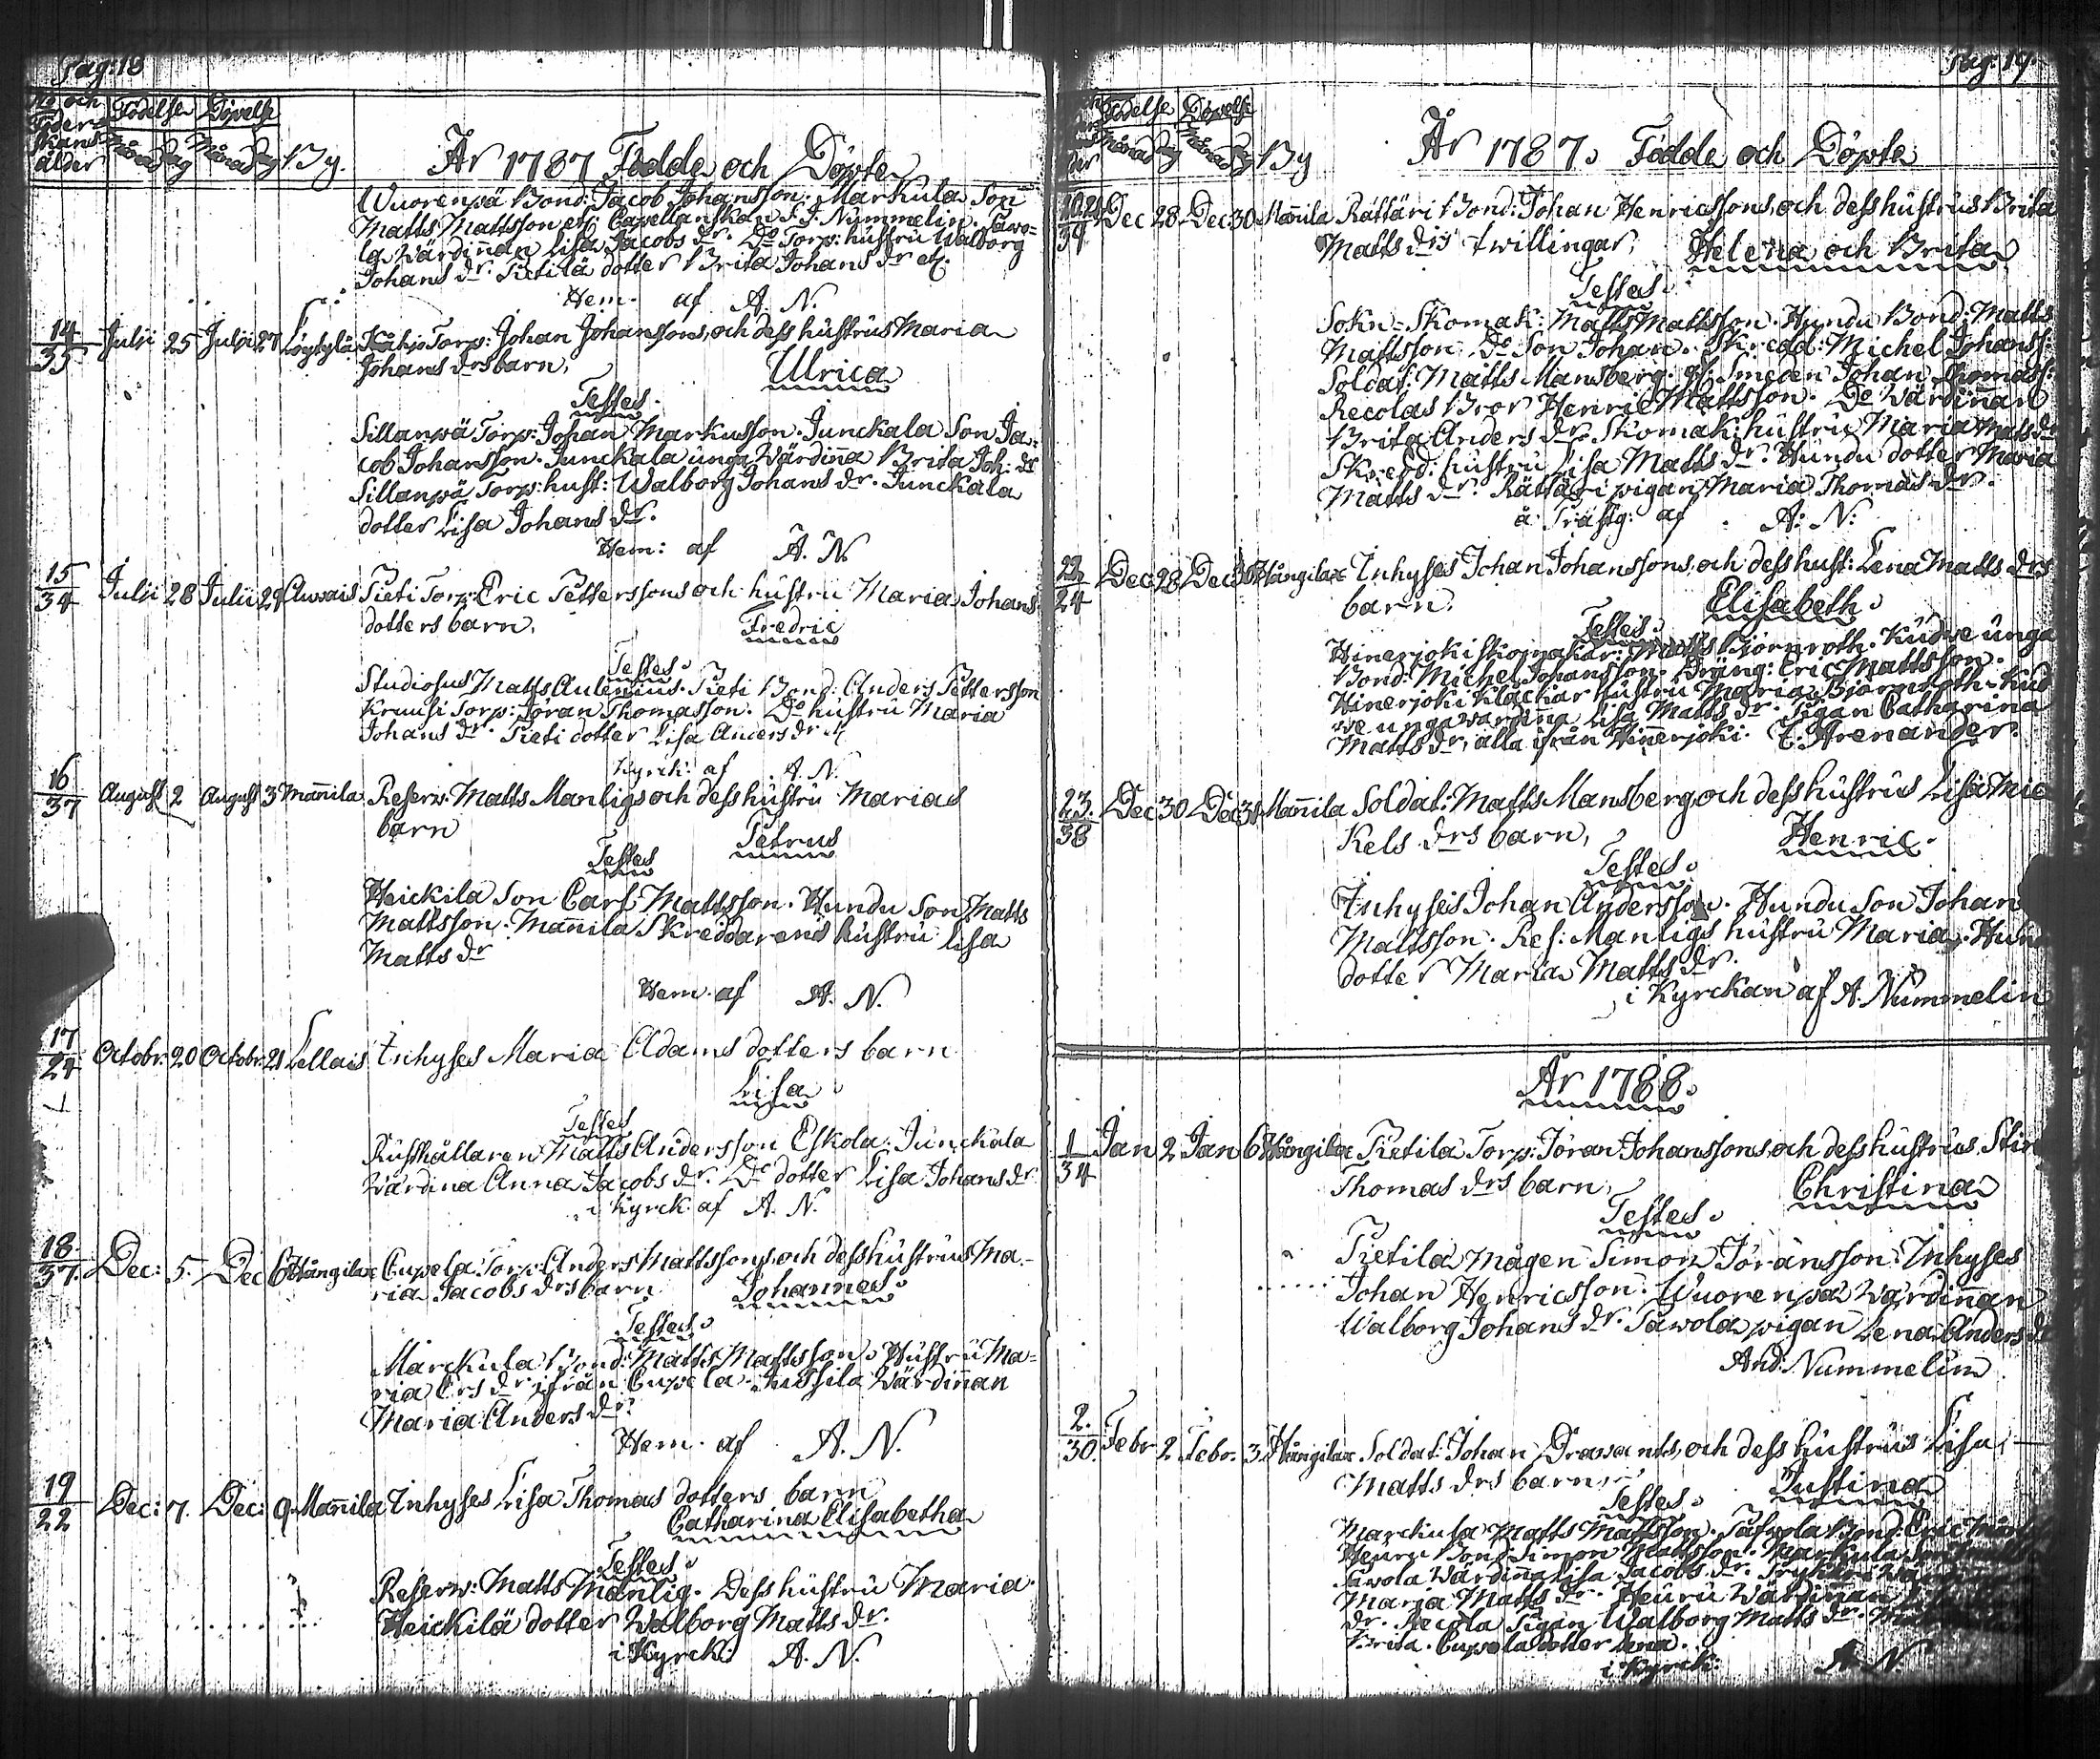 Pag: 18
No och
Moders
Födelse Döpelse
åhlder Månad Dag Månad Dag By.
År 1787 Födde och Döpte
Wuorenpä Bond: Jacob Johansson. Markula Son
Matts Mattsson etc. Capellanskan F. J. Nummelin. Sawo-
la Wärdinnan Lisa Jacobs dr. Do Torp: hustru Walborg
Johans dr. Pietilä dotter Brita Johans dr etc.
Hem. af A. N.
14/35 Julii 25 Julii 27 Löytylä Torp: Johan Johanssons och dess hustrus Maria
Johans drs barn, Ulrica
Testes.
Sillanpä Torp: Johan Markusson. Junckala Son Ja-
cob Johansson. Junckala unga Wärdinna Brita Joh: dr
Sillanpä Torp: hust: Walborg Johans dr. Junckala
dotter Lisa Johans dr.
Hem: af A. N.
15/34 Julii 28 Julii 29 Auvais Pieti Torp: Eric Petterssons och hustru Maria Johans
dotters barn, Fredric
Testes.
Studiosus Matts Aulenius. Pieti Bond: Anders Pettersson
Kruusi Torp: Jöran Thomasson. Do hustru Maria
Johans dr. Pieti dotter Lisa Anders dr
Kyrck: af A. N.
16/37 August 2 August 3 Mannila Reserv: Matts Manligs och dess hustru Marias
barn Petrus
Testes
Heickila Son Carl Mattsson. Hundu Son Matts
Mattsson. Mannila Skreddarens hustru Lisa
Matts dr
Hem. af A. N.
17/24 Octobr. 20 Octobr. 21 Lellais Inhyses Maria Adams dotters barn
Lisa.
Testes
Rusthållaren Matts Andersson Eskola. Junckala
Wärdina Anna Jacobs dr. Do dotter Lisa Johans dr
i Kyrck: af A. N.
18/37. Dec: 5. Dec 6 Hångilax Cupela Torp: Anders Mattssons och dess hustrus Ma-
ria Jacobs drs barn Johannes.
Testes.
Marckula Bond: Matts Mattsson. Hustru Ma-
ria Ers dr ifrån Cupela. Wärdinnan
Maria Anders dr.
Hem. af A. N.
19/22 Dec: 7. Dec: 9 Mannila Inhyses Lisa Thomas dotters barn
Catharina Elisabetha
Testes.
Reserv: Matts Manlig. Dess hustru Maria.
Heickilä dotter Walborg Matts dr.
i Kyrck: A. N.
Pag: 19.
Födelse Döpelse
Månad Dag Månad Dag By
År 1787. Födde och Döpte
20. 21/39 Dec 28 Dec 30 Mannila Rättäri Bond: Johan Henricssons och dess hustrus Brita
Matts drs twillingar, Helena och Brita
Testes.
Sokn-Skomak: Matts Mattsson. Hundu Bond: Matts
Mattsson. Do Son Johan. Skredd: Michel Johanss:
Soldat: Matts Mansberg. Smeden Johan Thomass:
Recolas Bror Henric Mattsson. Do Wärdinnan
Brita Anders dr. Skomak: hustru Maria Matts dr
Skredd: hustru Lisa Matts dr. Hundu dotter Maria
Matts dr. Rättäri pigan Maria Thomas dr.
å Prästg: af A. N.
22/24 Dec 28 Dec 30 Hångilax Inhyses Johan Johanssons och dess hust: Lena Matts drs
barn. Elisabeth.
Testes.
Hinerjoki Skomakar: Matts Björnroth. Kudwe unga
Bond: Michel Johansson. Dräng: Eric Mattsson.
Hinerjoki Klåckar hustru Maria Björnroth. Kud-
we unga wärdina Lisa Matts dr. Pigan Catharina
Matts dr, alla ifrån Hinerjoki. E. Arenander.
23./38 Dec 30 Dec 31 Mannila Soldat: Matts Mansberg och dess hustrus Lisa Mic
kels drs barn, Henric.
Testes.
Inhyses Johan Andersson. Hundu Son Johan
Mattsson. Res: Manligs hustru Maria. Hun
dotter Maria Matts dr.
i Kyrckan af A. Nummelin
År 1788.
1/34 Jan 2 Jan 6 Hångilax Pietila Torp: Jöran Johanssons och dess hustrus Stin
Thomas drs barn, Christina
Testes.
Pietila mågen Simon Jöransson. Inhyses
Johan Henricsson. Wuorenpä Wärdinnan
Walborg Johans dr. Sawola pigan Lena Anders dr
And: Nummelin
2./30. Febr 2 Febr. 3. Hångilax Soldat: Johan Drawants och dess hustrus Lisa
Matts drs barn, Justina
Testes.
Marckula Matts Mattsson. Safwola Bond: Eric
Heuru Bond Simon Mattsson. Markula
Sawola Wärdina Lisa Jacobs dr.
Maria Matts dr. Heuru Wärdinnan
dr. Recola Pigan Walborg Matts dr.
Brita. Cupela dotter Lena.
i Kyrck: A. N.